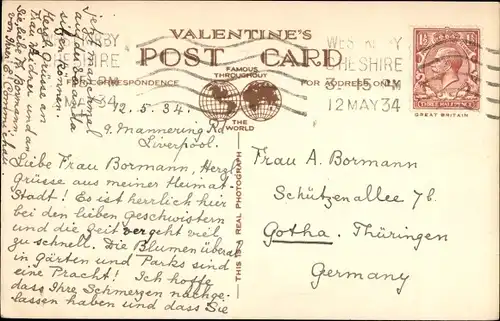 VALENTINE'S
POST CARD
FAMOUS
THROUGHOUT
FOR CORRESPONDENCE
FOR ADDRESS ONLY
THE
WORLD
THIS IS A REAL PHOTOGRAPH
WEST KIRBY
CHESHIRE
3 - 15 PM
12 MAY 34
THREE HALFPENCE
GREAT BRITAIN
12.5.34.
9. Mannering Rd
Liverpool.
Liebe Frau Bormann, Herzl.
Grüsse aus meiner Heimat-
Stadt! Es ist herrlich hier
bei den lieben Geschwistern
und die Zeit vergeht viel
zu schnell. Die Blumen überall
in Gärten und Parks sind
eine Pracht! Ich hoffe
dass Ihre Schmerzen nachge-
lassen haben und dass Sie
jetzt manchmal
auf der Veranda
sitzen können.
Herzl. Grüsse an
Frau Weidner und an
Sie liebe Fr. Bormann,
von Ihrer E.
Frau A. Bormann
Schützenallee 7b.
Gotha. Thüringen
Germany